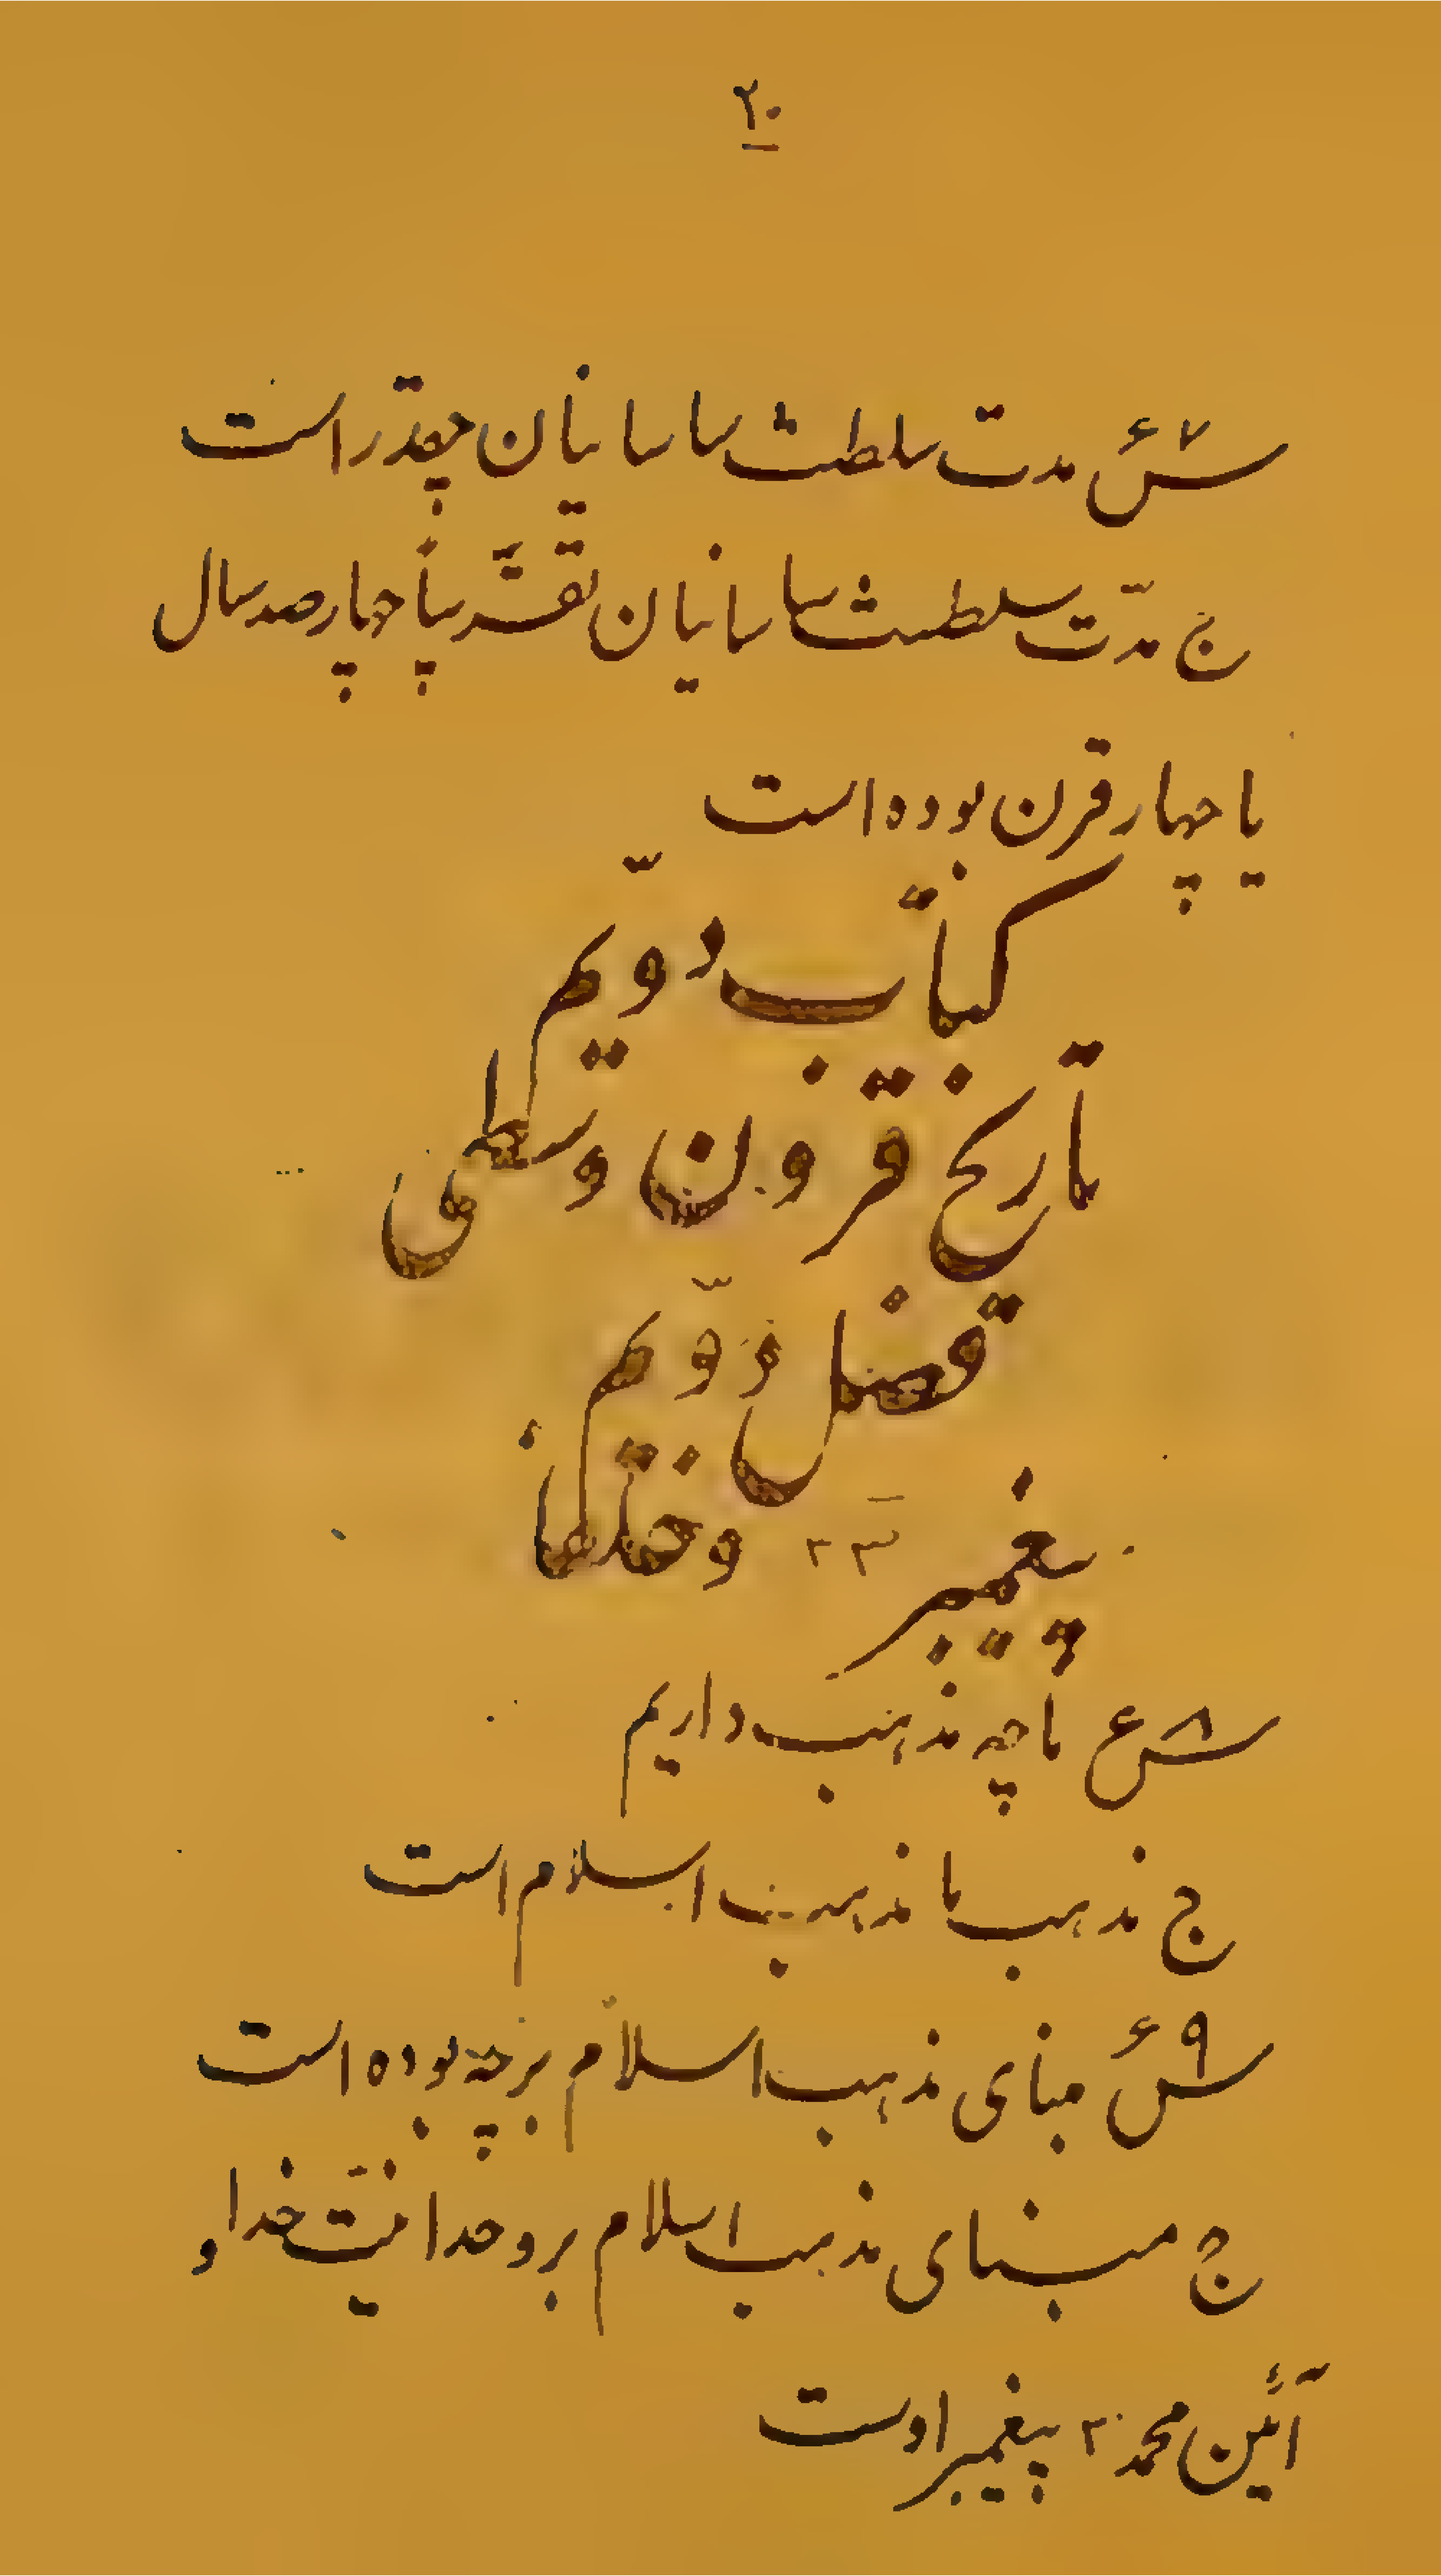 ۲۰
س ۶۷ مدت سلطنت ساسانیان چقدر است
ج مدّت سلطنت ساسانیان تقریباً چهارصد سال
یا چهار قرن بوده است
کتاب دویّم
تاریخ قرون وسطی
فصل دویّم
پیغمبر و خلفا
س ۶۸ ما چه مذهب داریم
ج مذهب ما مذهب اسلام است
س ۶۹ مبنای مذهب اسلام بر چه بوده است
ج مبنای مذهب اسلام بر وحدانیّت خدا و
آئین محمد پیغمبر اوست